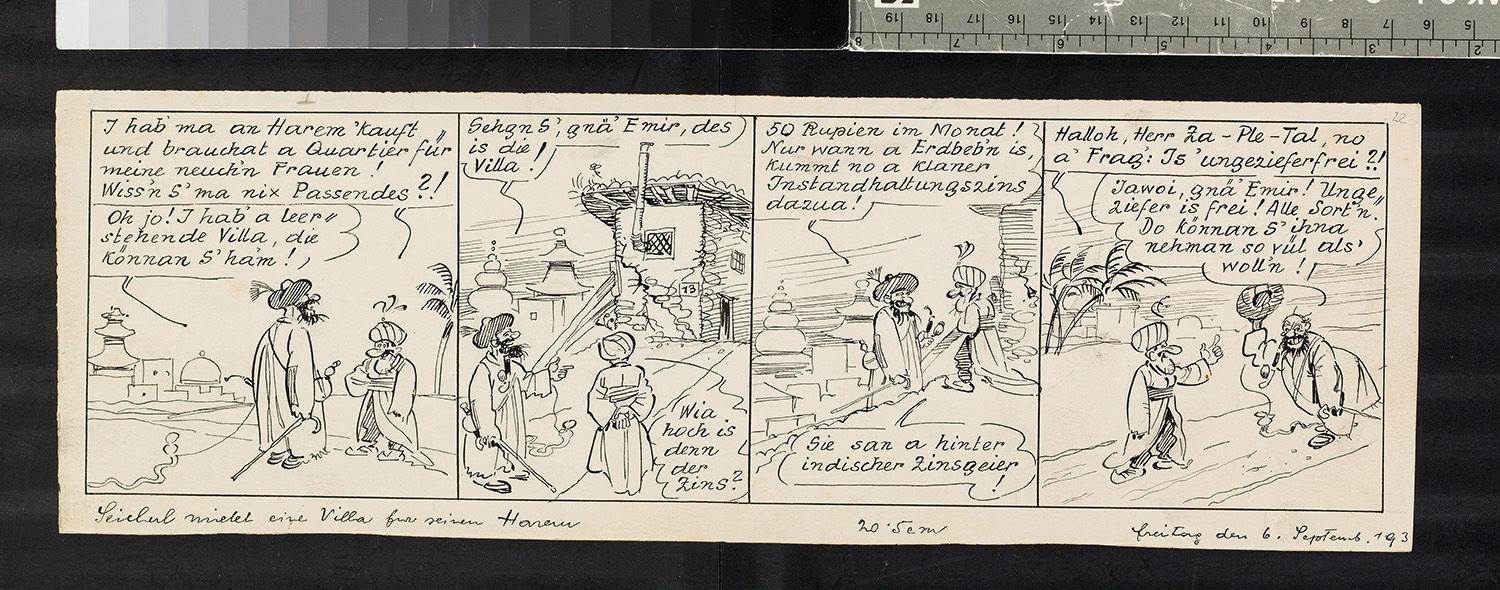 I hab' ma an Harem 'kauft
und brauchat a Quartier für
meine neuch'n Frauen!
Wiss'n S' ma nix Passendes?!
Oh jo! I hab' a leer=
stehende Villa, die
können S' ha'm!
Sehgn S', gnä' Emir, des
is die
Villa!
13
Wia
hoch is
denn
der
Zins?
50 Rupien im Monat!
Nur wann a Erdbeb'n is,
kummt no a klaner
Instandhaltungszins
dazua!
Sie san a hinter
indischer Zinsgeier
!
22
Halloh, Herr Za-Ple-Tal, no
a' Frag': Is' ungezieferfrei?!
Jawoi, gnä' Emir! Unge=
ziefer is frei! Alle Sort'n.
Do können S' ihna
nehman so vül als'
woll'n!
Seicherl mietet eine Villa für seinen Harem
20·5cm
freitag den 6. Septemb. 193
19 18 17 16 15 14 13 12 11 10 9 8 7 6 5
8 7 6 5 4 3 2